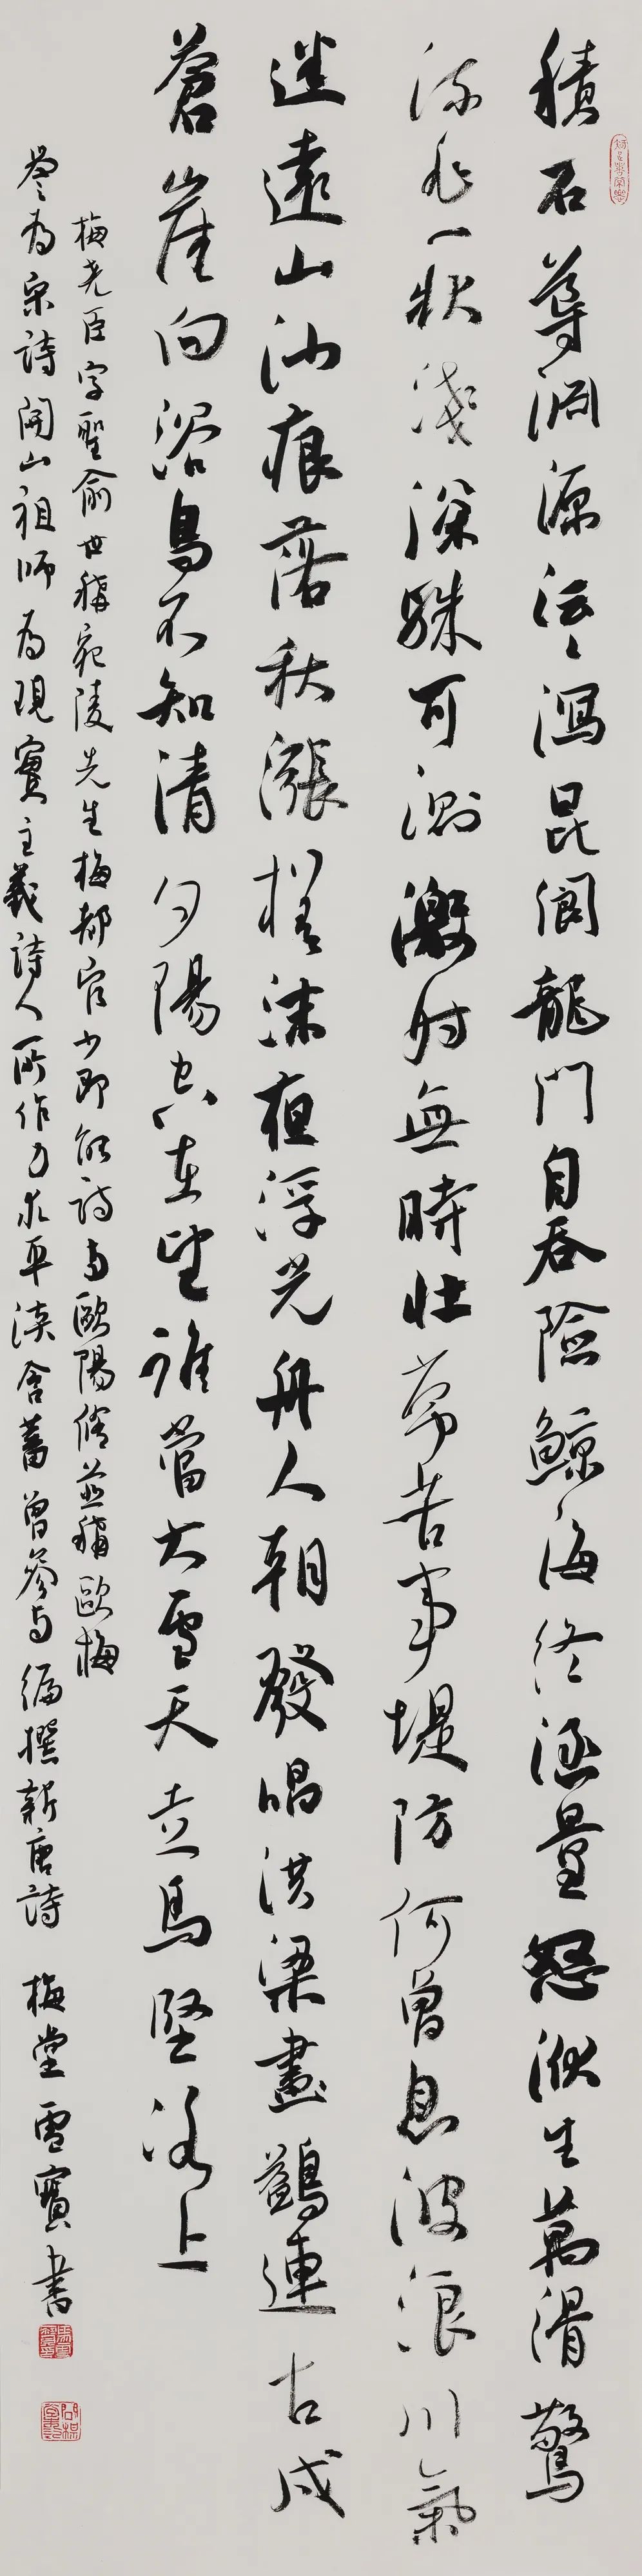 積石導渊源沄沄瀉昆閬龍門自吞險鯨海終涵量怒洑生萬渦驚
流非一狀淺深殊可測激射無時壯常苦事堤防何曾息波浪川氣
迷遠山沙痕落秋漲槎沫夜浮光舟人朝發唱洪梁畫鷁連古戍
蒼崖向浴鳥不知清夕陽空在望誰當大雪天走馬堅冰上
梅堯臣字聖俞世稱宛陵先生梅都官少即能詩與歐陽脩並稱歐梅
譽為宋詩開山祖師為現實主義詩人所作力求平淡含蓄曾參與編撰新唐詩 梅堂雪寶書